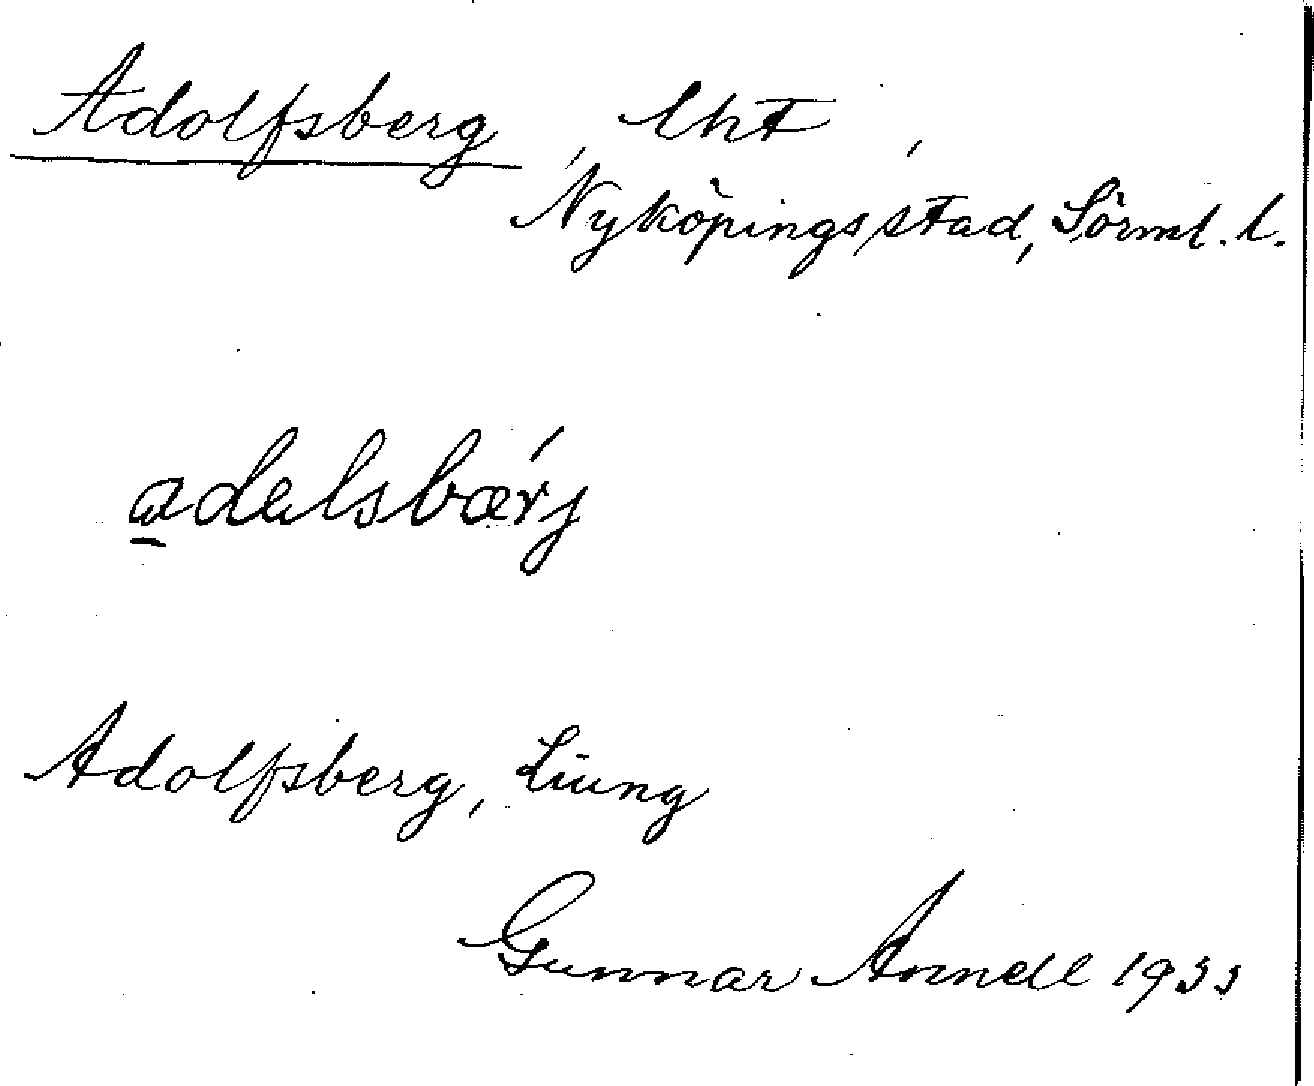 Adolfsberg, lht,
Nyköpings stad, Sörml. l.
adəlsbærj
Adolfsberg, Liung
Gunnar Annell 1933